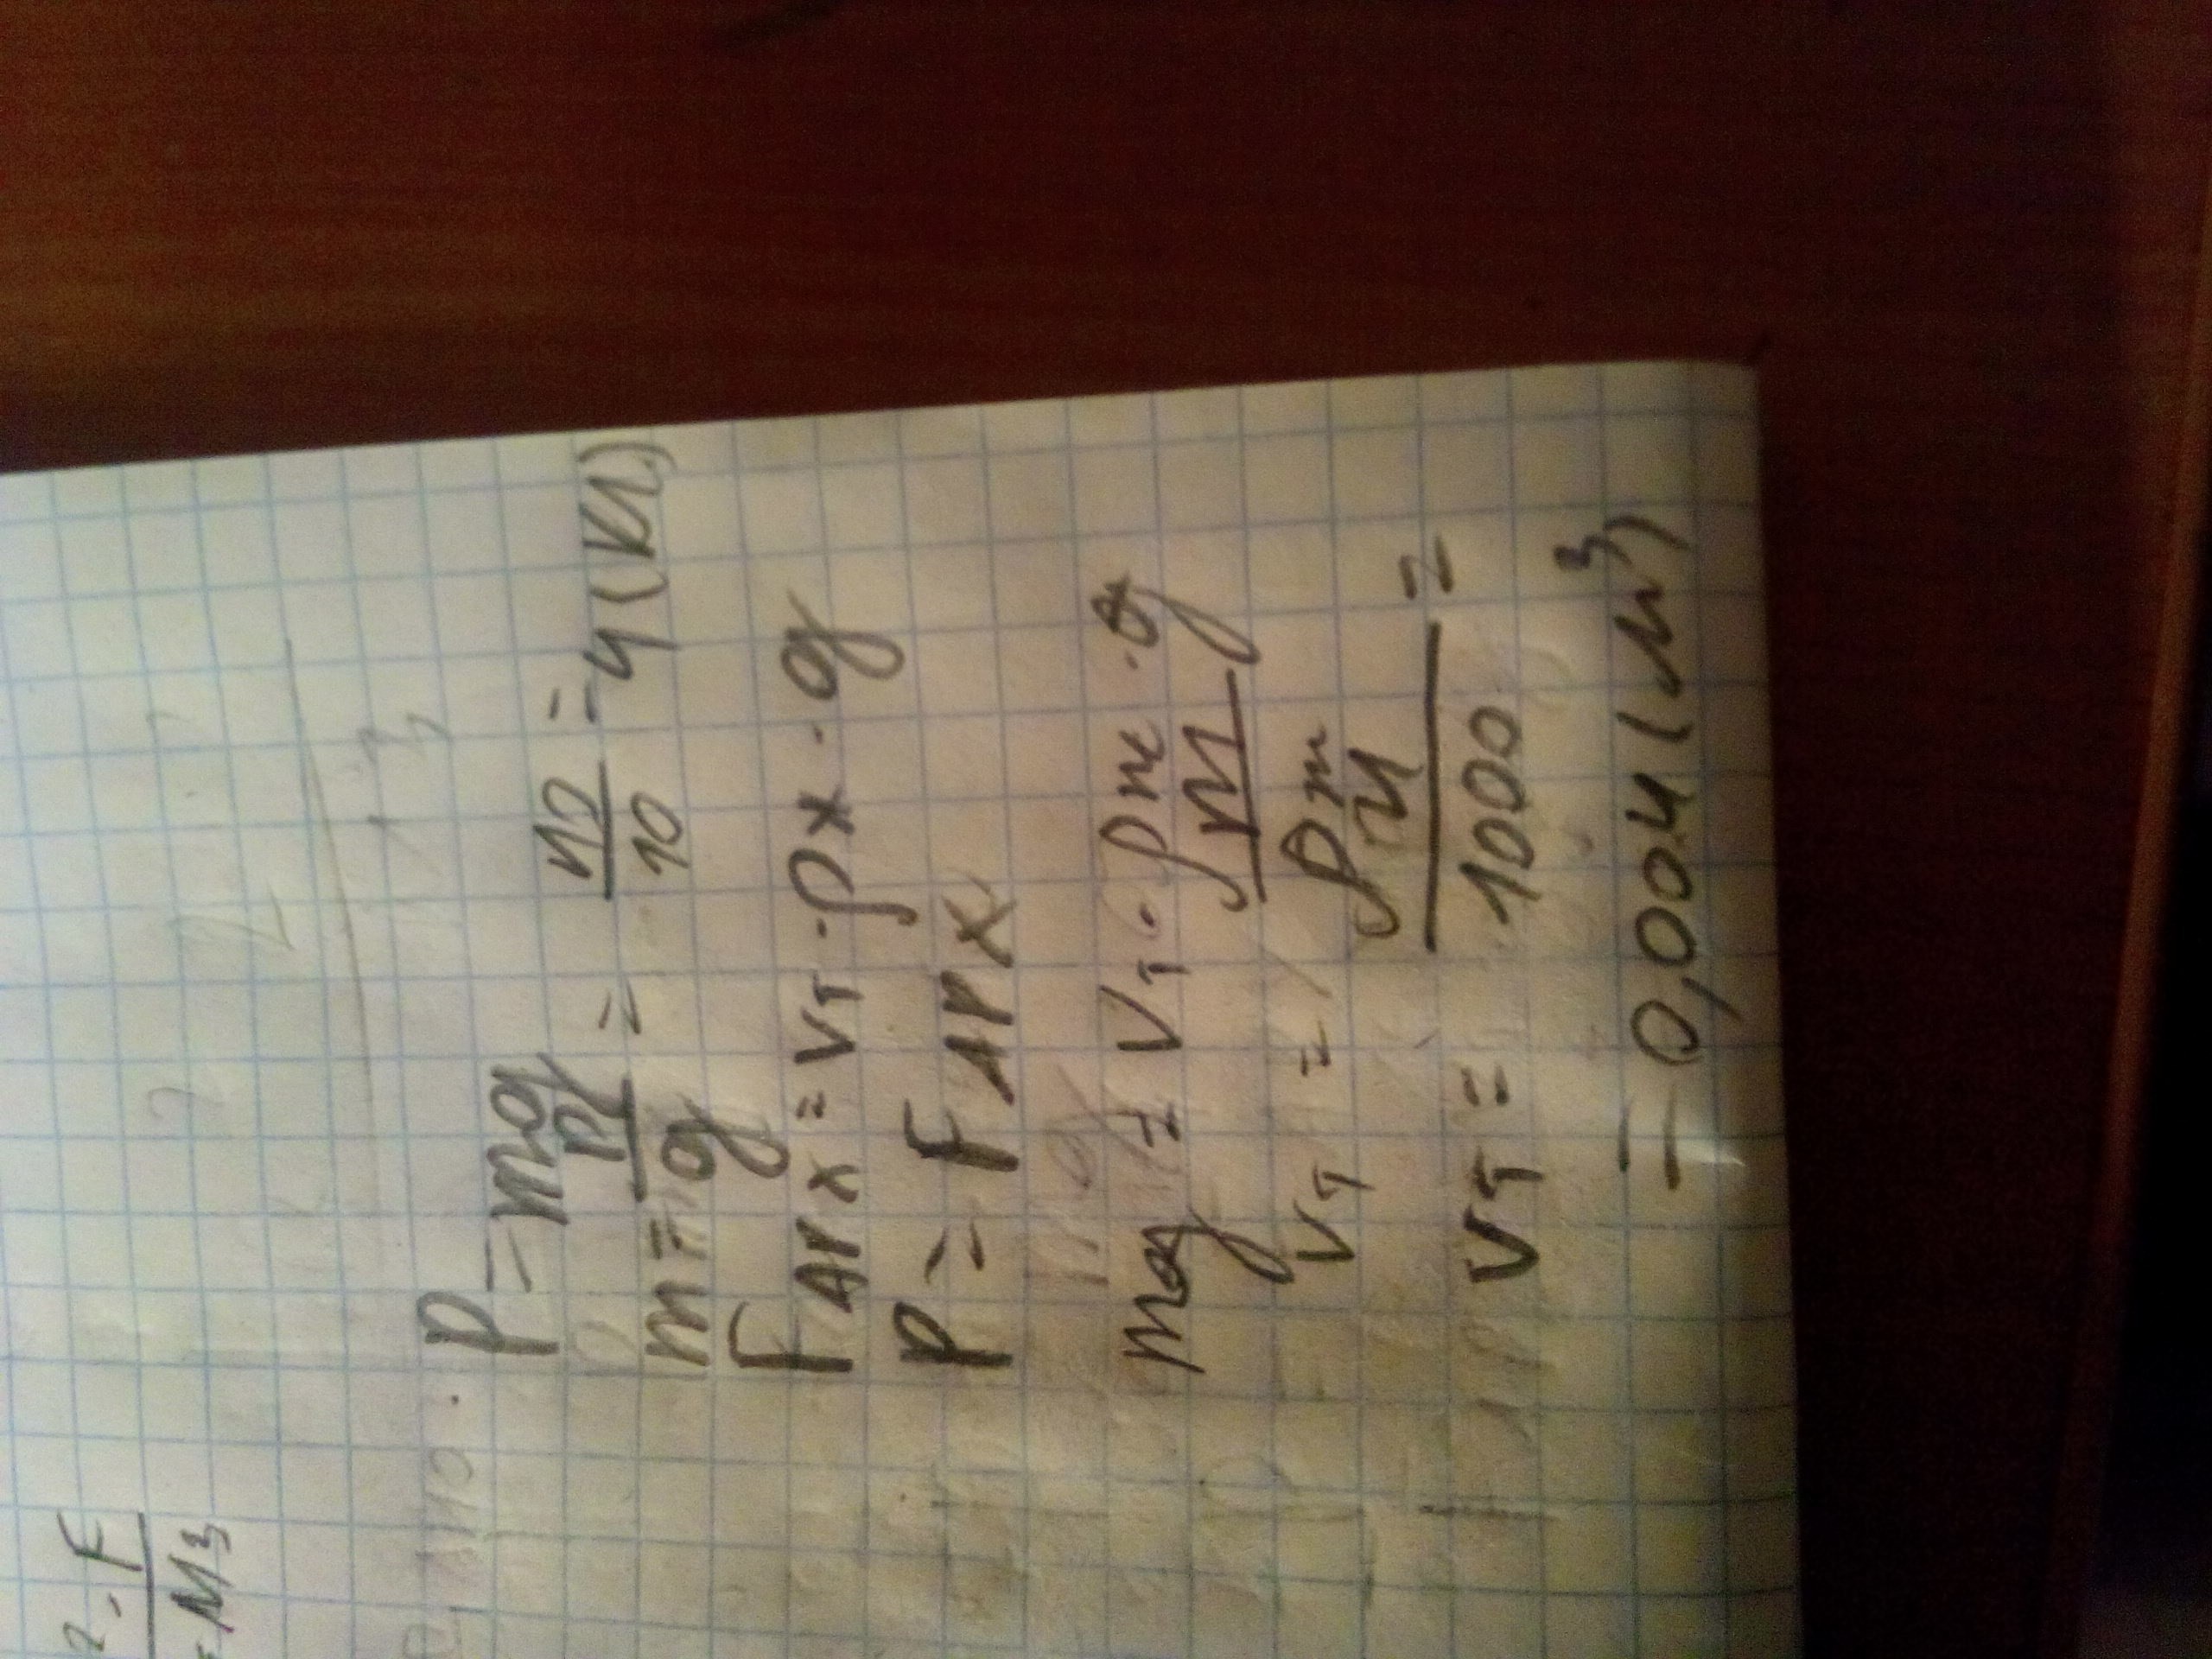 P = mg
m = P/g = 40/10 = 4 (кг)
FАРХ = VT · ρж · g
P = FАРХ
mg = VT · ρж · g
VT = m/ρж
VT = 4/1000 =
= 0,004 (м³)